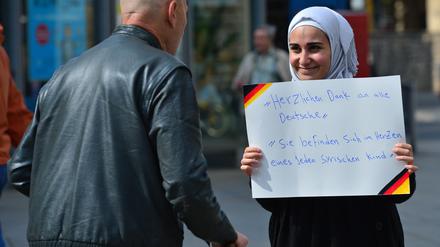 "Herzlichen Dank an alle
Deutsche"
"Sie befinden sich im Herzen
eines jeden syrischen Kind"